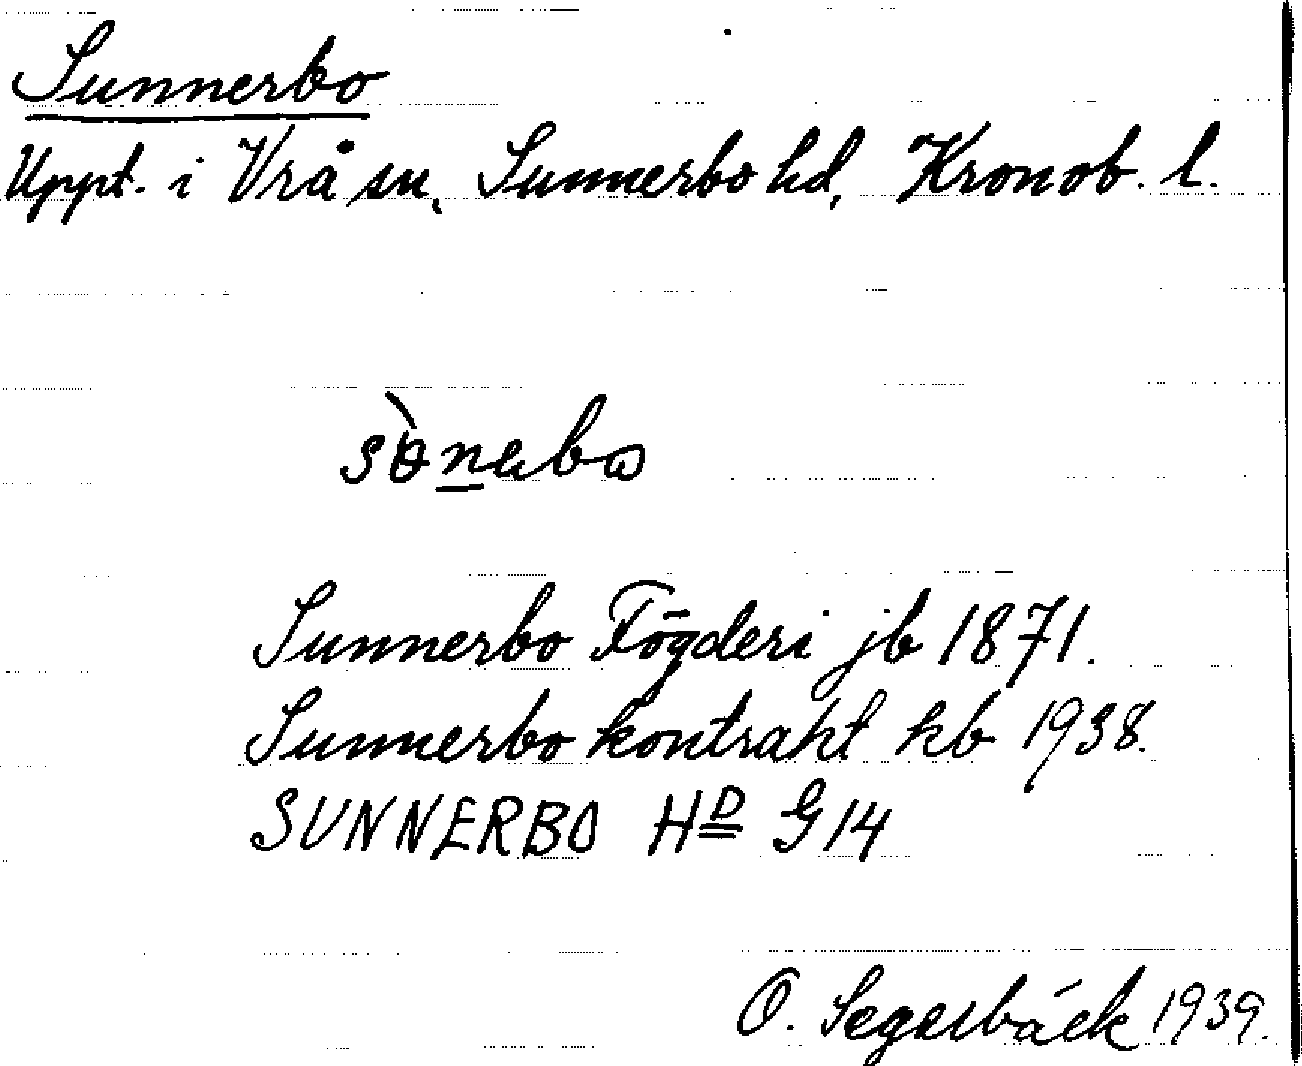 Sunnerbo
Uppt. i Vrå sn, Sunnerbo hd, Kronob. l.
Sunnerbo Fögderi jb 1871.
Sunnerbo kontrakt kb 1938.
SUNNERBO HD G14
O. Segerbäck 1939.